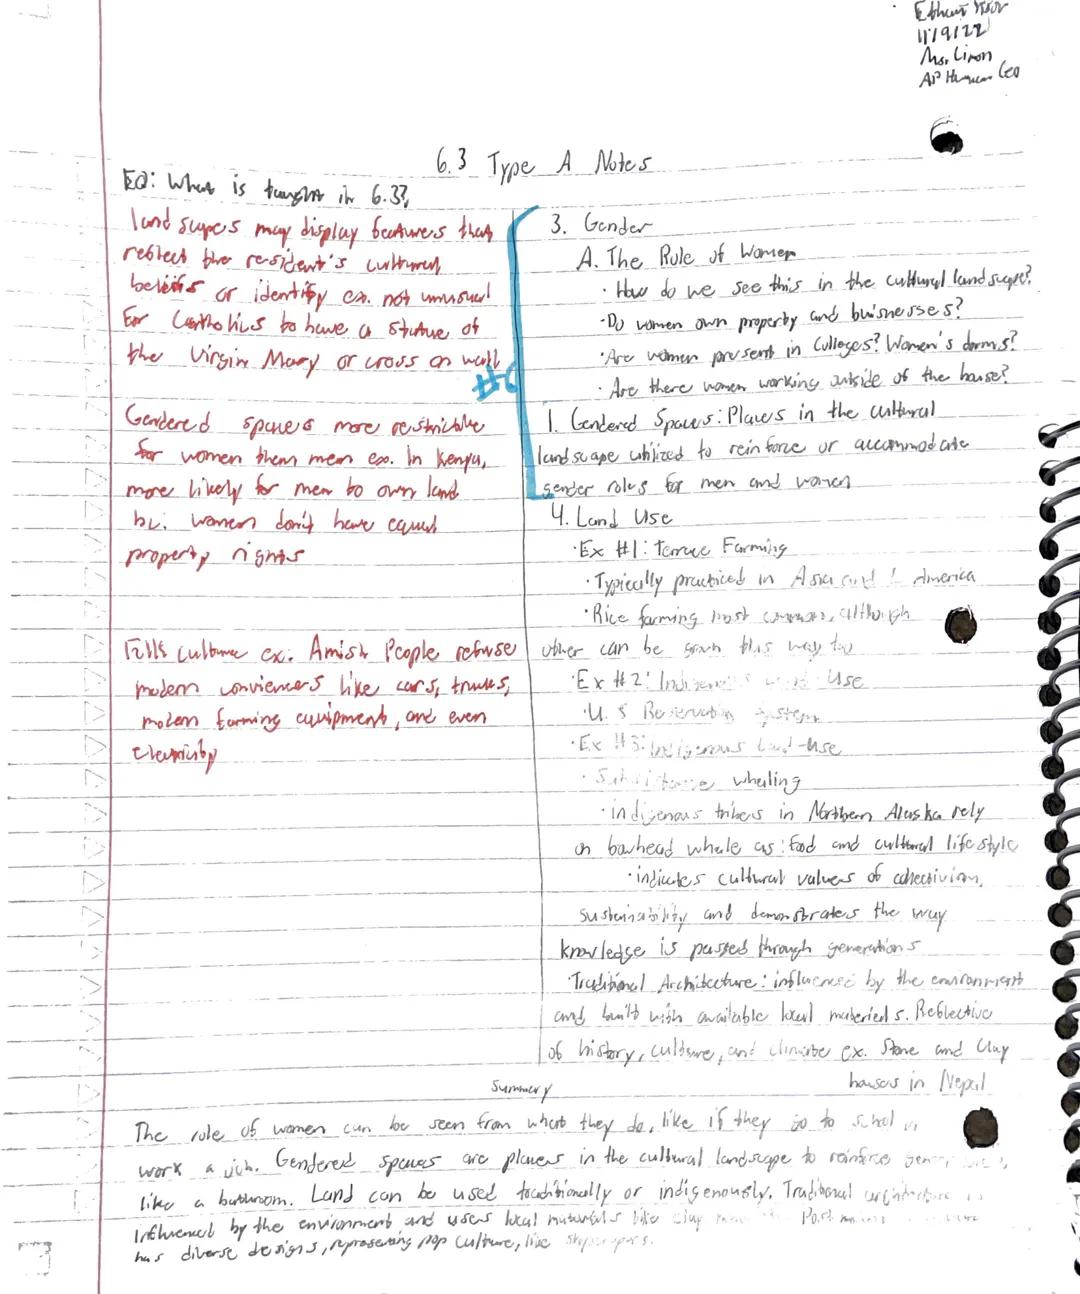 11/9/22
Ms. Limon
AP Human Geo
6.3 Type A Notes
EQ: What is taught in 6.3?
landscapes may display features that
reflect the resident's cultural
beliefs or identity ex. not unusual
for Catholics to have a statue of
the Virgin Mary or cross on wall
Gendered spaces more restrictive
for women them men ex. In Kenya,
more likely for men to own land
bc. women don't have equal
property rights
Folk culture ex. Amish People refuse
modern conviences like cars, trucks,
modern farming equipment, and even
electricity
#6
3. Gender
A. The Role of Women
· How do we see this in the cultural landscape?
· Do women own property and buisnesses?
· Are women present in Colleges? Women's dorms?
· Are there women working outside of the house?
1. Gendered Spaces: Places in the cultural
landscape utilized to reinforce or accommodate
gender roles for men and women
4. Land Use
· Ex #1: Terrace Farming
· Typically practiced in Asia and America
· Rice farming most common, although
other can be grown this way too
· Ex #2: Indigenous Land Use
· U.S Reservation system
· Ex #3: Indigenous Land-Use
· Subsistence whaling
· indigenous tribes in Northern Alaska rely
on bowhead whale as food and cultural lifestyle
· indicates cultural values of collectivism,
sustainability and demonstrates the way
knowledge is passed through generations
Traditional Architecture: influenced by the environment
and built with available local materials. Reflective
of history, culture, and climate ex. Stone and Clay
houses in Nepal
Summary
The role of women can be seen from what they do, like if they go to school or
work a job. Gendered spaces are places in the cultural landscape to reinforce gender
like a bathroom. Land can be used traditionally or indigenously. Traditional architecture is
influenced by the environment and uses local materials like clay
has diverse designs, representing pop culture, like skyscrapers.